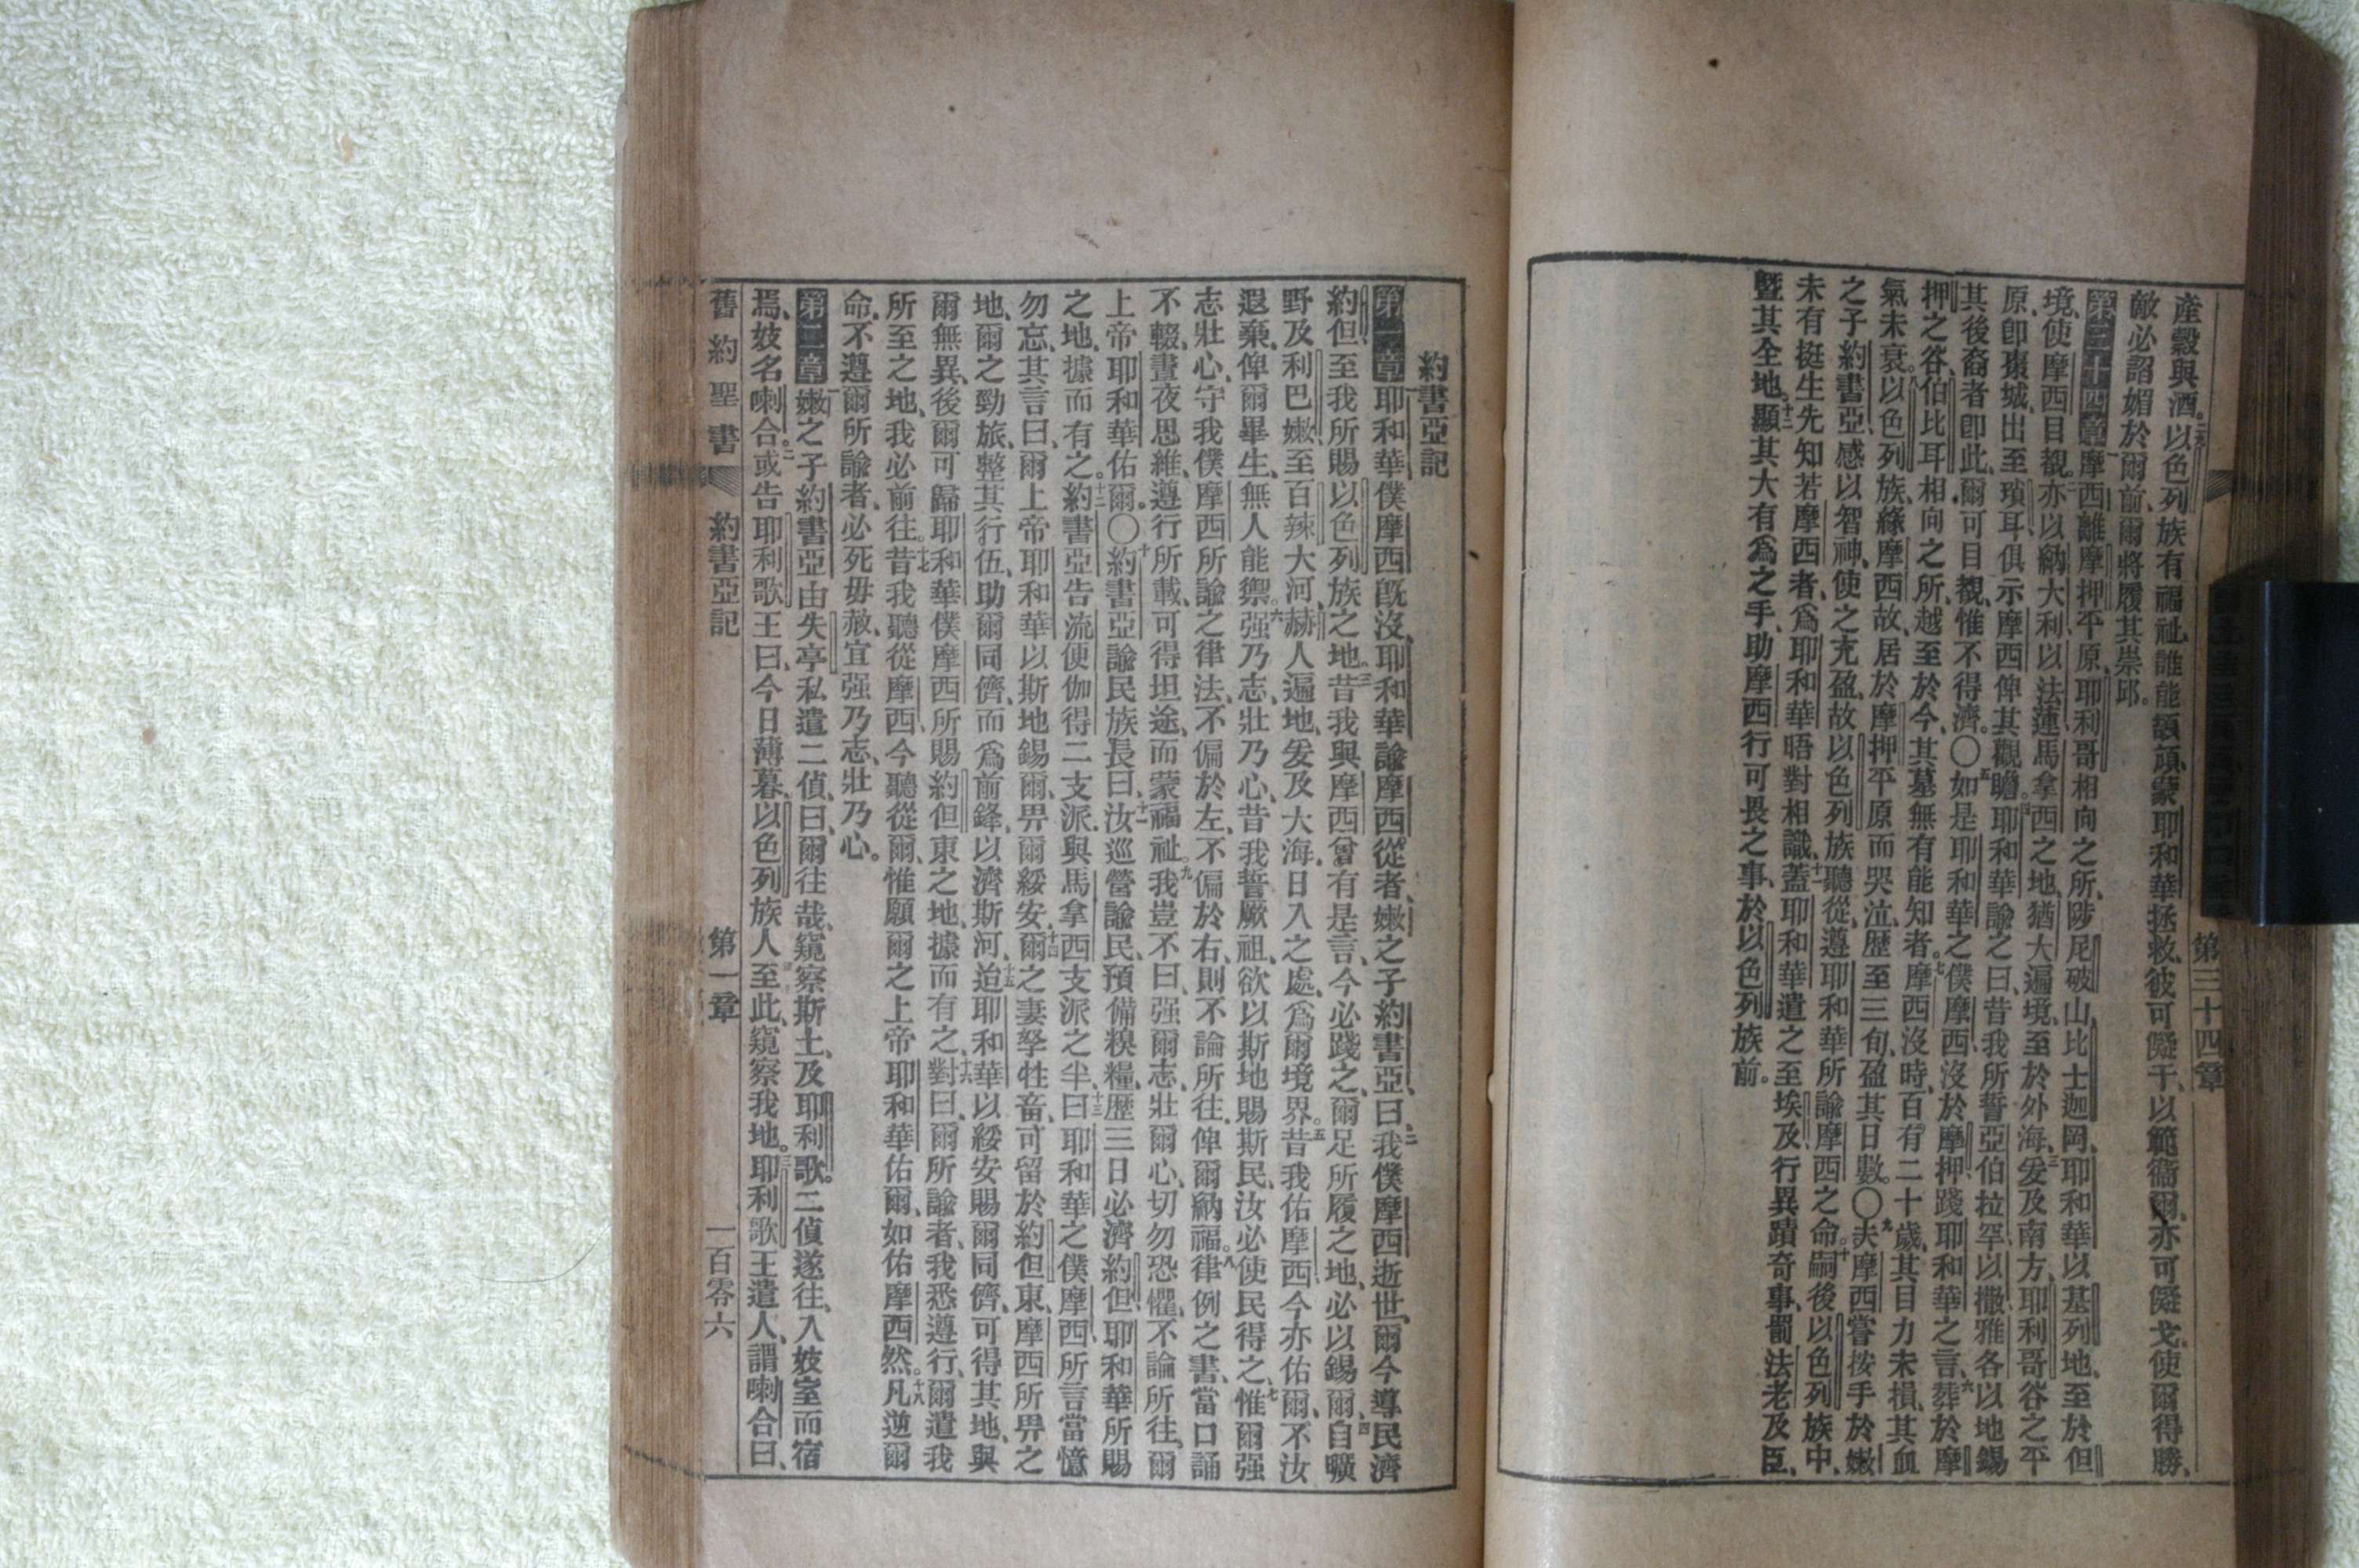 產穀與酒。二九以色列族有福祉、誰能頡頏、蒙耶和華拯救、彼可儗干、以範衞爾、亦可儗戈、使爾得勝、
敵必諂媚於爾前、爾將履其崇邱。
第三十四章一摩西離摩押平原、耶利哥相向之所、陟尼破山比士迦岡、耶和華以基列地、至於但
境、使摩西目覩、二亦以納大利、以法蓮馬拿西之地、猶大遍境、至於外海、三爰及南方、耶利哥谷之平
原、卽棗城、出至瑣耳、俱示摩西俾其觀瞻。四耶和華諭之曰、昔我所誓亞伯拉罕以撒雅各以地錫
其後裔者卽此、爾可目覩、惟不得濟。〇五如是耶和華之僕摩西、沒於摩押、踐耶和華之言、六葬於摩
押之谷、伯比耳相向之所、越至於今、其墓無有能知者。七摩西沒時、百有二十歲、其目力未損、其血
氣未衰。以色列族、緣摩西故、居於摩押平原而哭泣、歷至三旬、盈其日數。〇九夫摩西嘗按手於嫩
之子約書亞、感以智神、使之充盈、故以色列族聽從、遵耶和華所諭摩西之命。十嗣後以色列族中、
未有挺生先知若摩西者、爲耶和華晤對相識、十一蓋耶和華遣之至埃及、行異蹟奇事、罰法老及臣、
曁其全地。十二顯其大有爲之手、助摩西行可畏之事、於以色列族前。
第三十四章
約書亞記
第一章一耶和華僕摩西旣沒、耶和華諭摩西從者、嫩之子約書亞、曰、二我僕摩西逝世、爾今導民濟
約但、至我所賜以色列族之地。三昔我與摩西曾有是言、今必踐之、爾足所履之地、必以錫爾、四自曠
野及利巴嫩、至百辣大河、赫人遍地、爰及大海、日入之處、爲爾境界。五昔我佑摩西、今亦佑爾、不汝
遐棄、俾爾畢生、無人能禦。六强乃志、壯乃心、昔我誓厥祖、欲以斯地賜斯民、汝必使民得之、七惟爾强
志壯心、守我僕摩西所諭之律法、不偏於左、不偏於右、則不論所往、俾爾納福。八律例之書、當口誦
不輟、晝夜思維、遵行所載、可得坦途、而蒙福祉。九我豈不曰、强爾志、壯爾心、切勿恐懼、不論所往、爾
上帝耶和華佑爾。〇十約書亞諭民族長曰、十一汝巡營諭民、預備糗糧、歷三日必濟約但、耶和華所賜
之地、據而有之。十二約書亞告流便伽得二支派、與馬拿西支派之半、曰、十三耶和華之僕摩西所言當憶
勿忘、其言曰、爾上帝耶和華以斯地錫爾、畀爾綏安、十四爾之妻孥牲畜、可留於約但東、摩西所畀之
地、爾之勁旅、整其行伍、助爾同儕、而爲前鋒、以濟斯河、十五迨耶和華以綏安賜爾同儕、可得其地、與
爾無異、後爾可歸耶和華僕摩西所賜約但東之地、據而有之、十六對曰、爾所諭者、我悉遵行、爾遣我
所至之地、我必前往。十七昔我聽從摩西、今聽從爾、惟願爾之上帝耶和華佑爾、如佑摩西然。十八凡逆爾
命、不遵爾所諭者、必死毋赦、宜强乃志、壯乃心。
第二章一嫩之子約書亞由失亭私遣二偵、曰、爾往哉、窺察斯土、及耶利歌。二偵遂往、入妓室而宿
焉、妓名喇合。二或告耶利歌王曰、今日薄暮、以色列族人至此、窺察我地。三耶利歌王遣人、謂喇合曰、
舊約聖書 約書亞記 第一章 一百零六